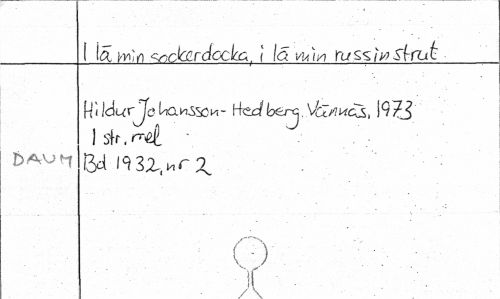 I lā min sockerdocka, i lā min russinstrut
Hildur Johansson-Hedberg. Vännäs, 1973
1 str. mel
DAUM Bd 1932, nr 2